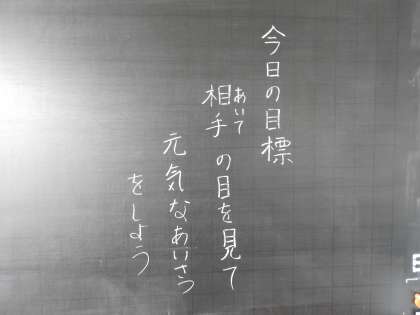 今日の目標
相手の目を見て
あいて
元気なあいさつ
をしよう